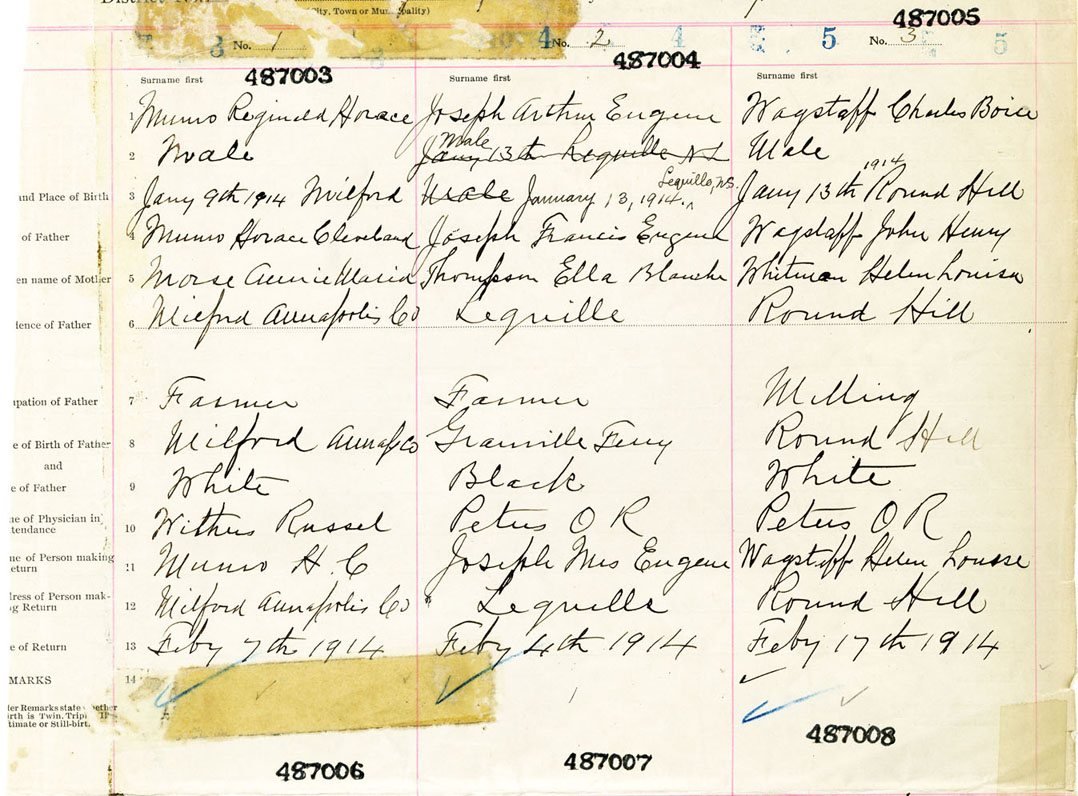 (City, Town or Municipality)
487005
3 No. 1 4 No. 2 4 5 No. 3 5
487003 487004
Surname first Surname first Surname first
1 Munro Reginald Horace Joseph Arthur Eugene Wagstaff Charles Boice
Male
2 Male Jany 13th Lequille N S Male
1914
Lequille, N.S.
and Place of Birth 3 Jany 9th 1914 Milford Male January 13, 1914. Jany 13th Round Hill
of Father 4 Munro Horace Cleveland Joseph Francis Eugene Wagstaff John Henry
en name of Mother 5 Morse Annie Maria Thompson Ella Blanche Whitman Helen Louisa
dence of Father 6 Milford Annapolis Co Lequille Round Hill
upation of Father 7 Farmer Farmer Milling
e of Birth of Father 8 Milford Annap Co Granville Ferry Round Hill
and
e of Father 9 White Black White
ne of Physician in
tendance 10 Withers Russel Peters O R Peters O R
ne of Person making
eturn 11 Munro H. C Joseph Mrs Eugene Wagstaff Helen Louise
dress of Person mak-
ng Return 12 Milford Annapolis Co Lequille Round Hill
e of Return 13 Feby 7th 1914 Feby 4th 1914 Feby 17th 1914
MARKS 14
der Remarks state whether
irth is Twin, Tripl Il
timate or Still-birt.
487006 487007 487008